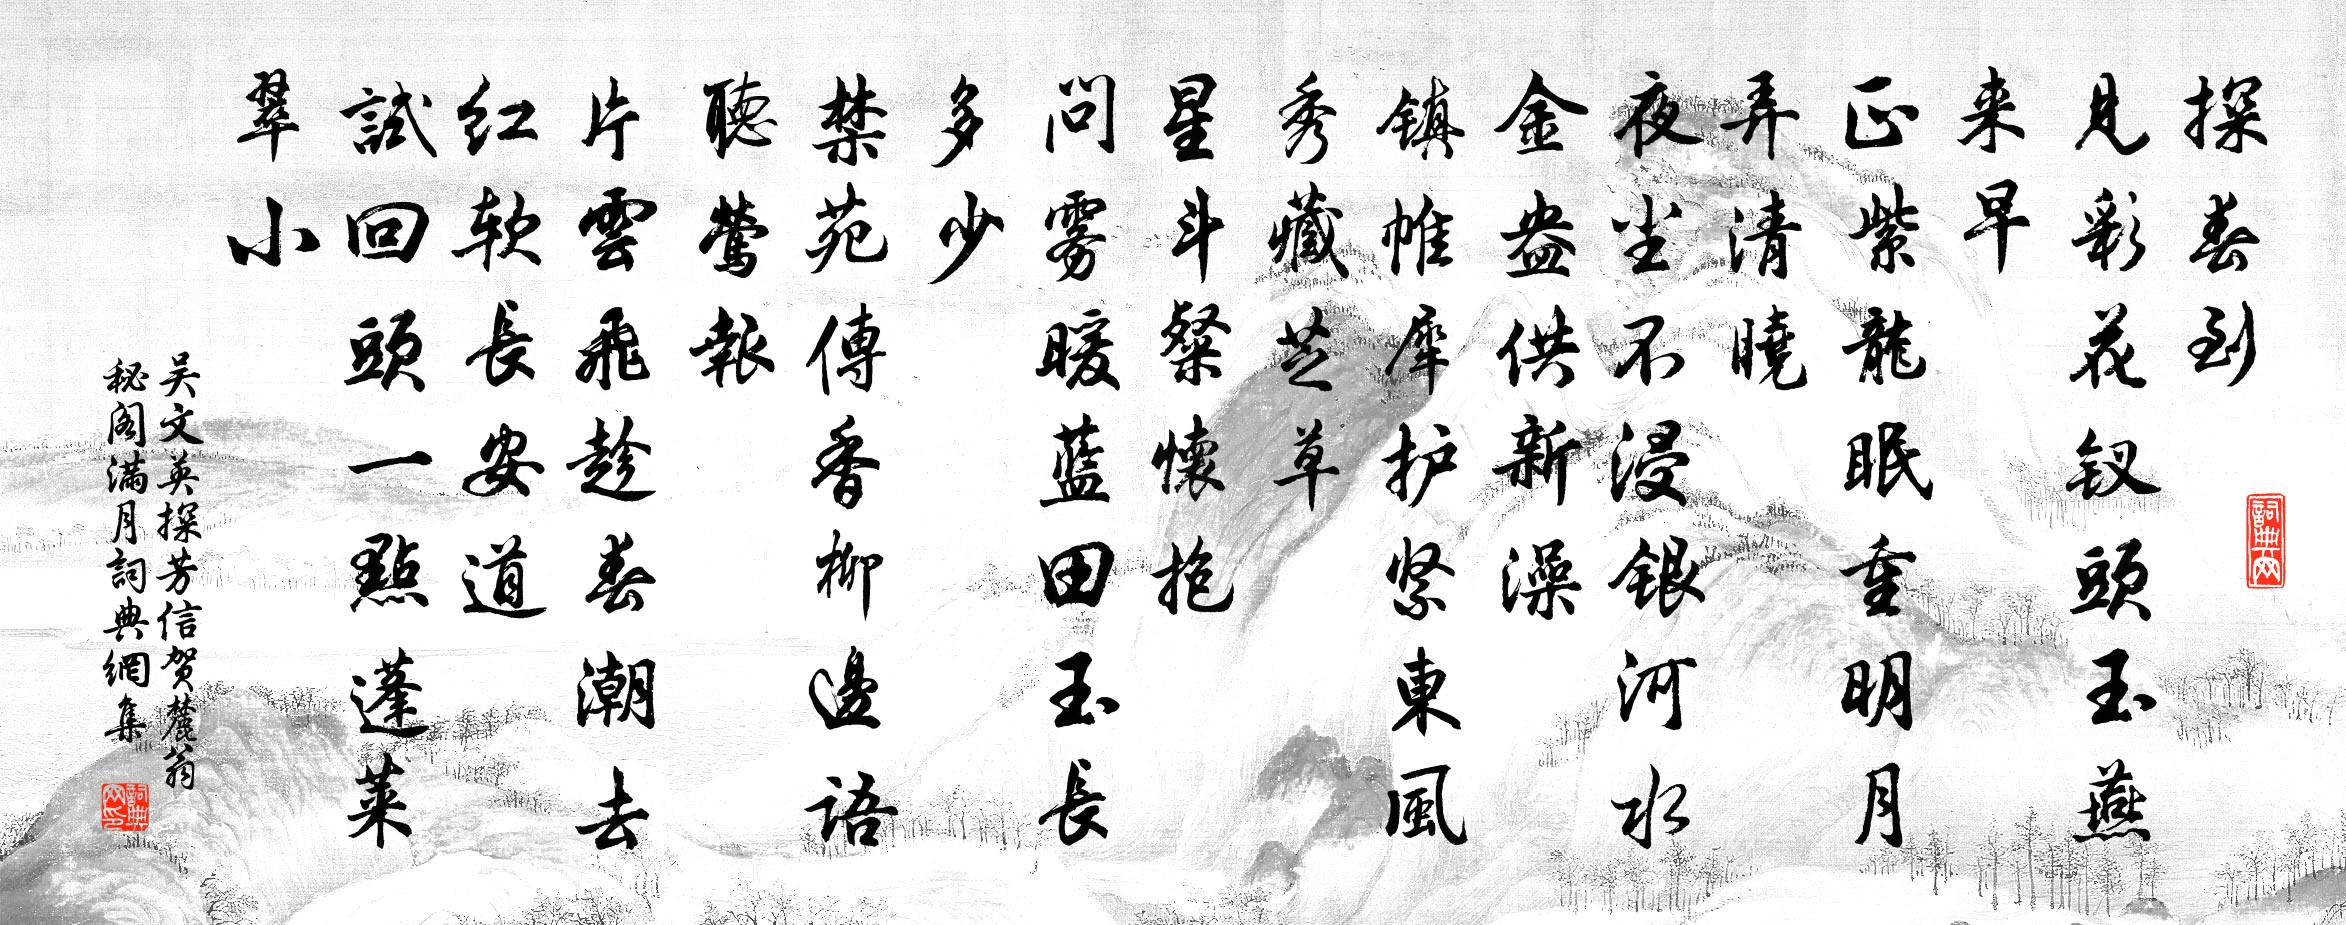 探春到
見彩花釵頭玉燕
来早
正紫龍眠重明月
弄清曉
夜尘不浸銀河水
金盎供新澡
镇帷犀护紧東風
秀藏芝草
星斗粲懷抱
問雾暖藍田玉長
多少
禁苑傳香柳邊語
聽莺報
片雲飛趁春潮去
红软長安道
試回頭一點蓬莱
翠小
吴文英探芳信贺麓翁
秘阁滿月詞典網集
詞典网
詞典网印